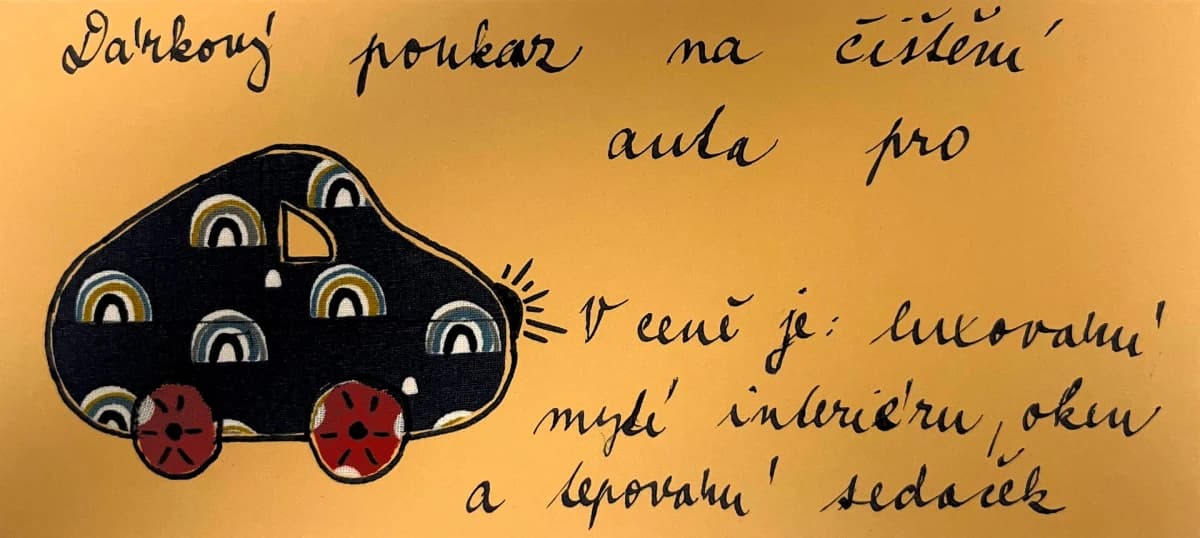 Dárkový poukaz na čištění
auta pro
V ceně je: luxování
mytí interiéru, oken
a tepování sedaček